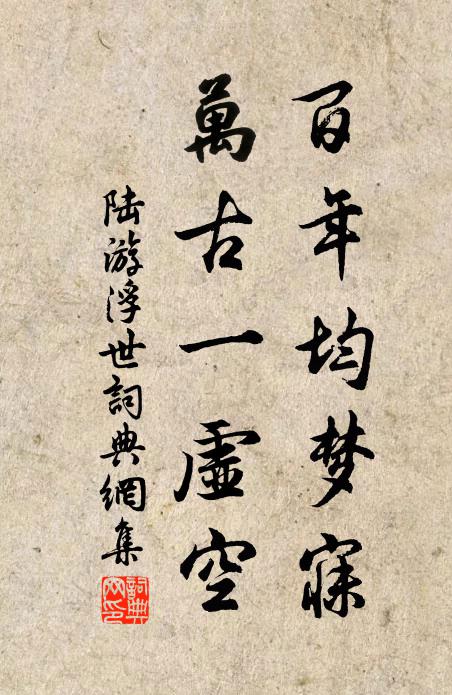 百年均梦寐
萬古一虛空
陆游浮世詞典網集
詞典网印